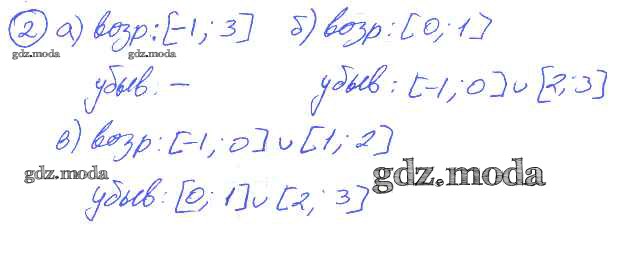 2 а) возр: [-1; 3] б) возр: [0; 1]
gdz.moda gdz.moda
убыв. — убыв: [-1; 0] ∪ [2; 3]
в) возр: [-1; 0] ∪ [1; 2]
gdz.moda gdz.moda
убыв: [0; 1] ∪ [2; 3]
gdz.moda